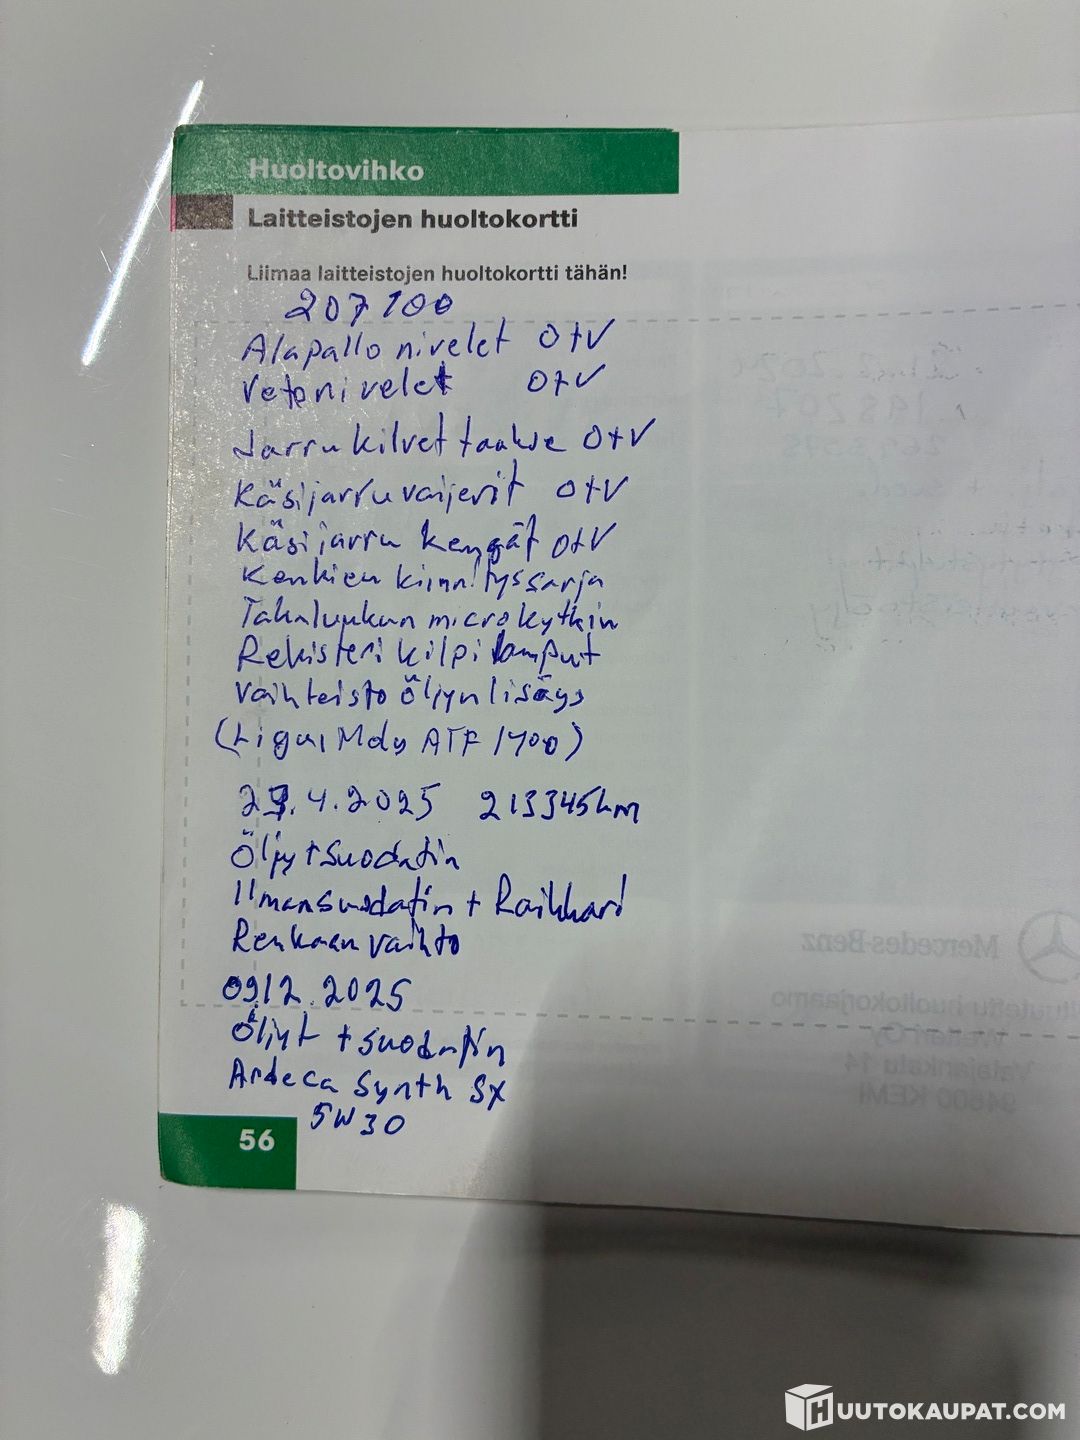 Huoltovihko
Laitteistojen huoltokortti
Liimaa laitteistojen huoltokortti tähän!
207100
Alapallo nivelet O+V
Vetonivelet O+V
Jarrukilvet taakse O+V
Käsijarruvaijerit O+V
Käsijarru kengät O+V
Kenkien kiinnityssarja
Takaluukun microkytkin
Rekisteri kilpi lamput
Vaihteisto öljyn lisäys
(Liqui Moly ATF 1700)
29.4.2025 213345km
Öljy+suodatin
Ilmansuodatin + Raikkari
Renkaan vaihto
09.12.2025
Öljyt + suodatin
Ardeca Synth SX
5W30
56
Mercedes-Benz
Valtuutettu huoltokorjaamo
Oy
14
94600 KEMI
HUUTOKAUPAT.COM